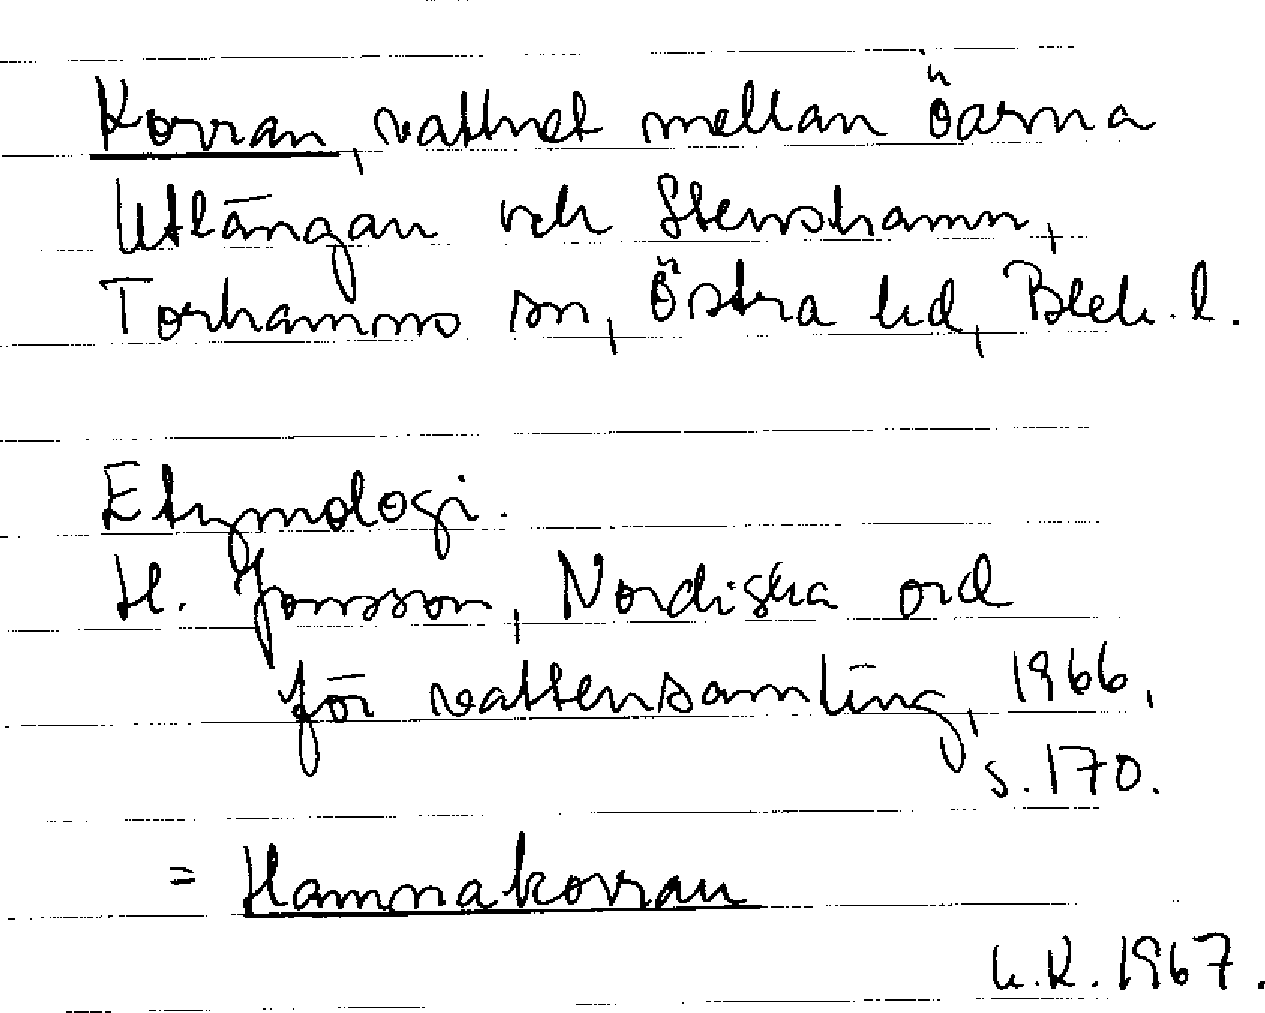 Korran, vattnet mellan öarna
Utlängan och Stenshamn,
Torhamns sn, Östra hd, Blek. l.
Etymologi.
H. Jonsson, Nordiska ord
för vattensamling, 1966,
s. 170.
= Hamnakorran
h.R. 1967.